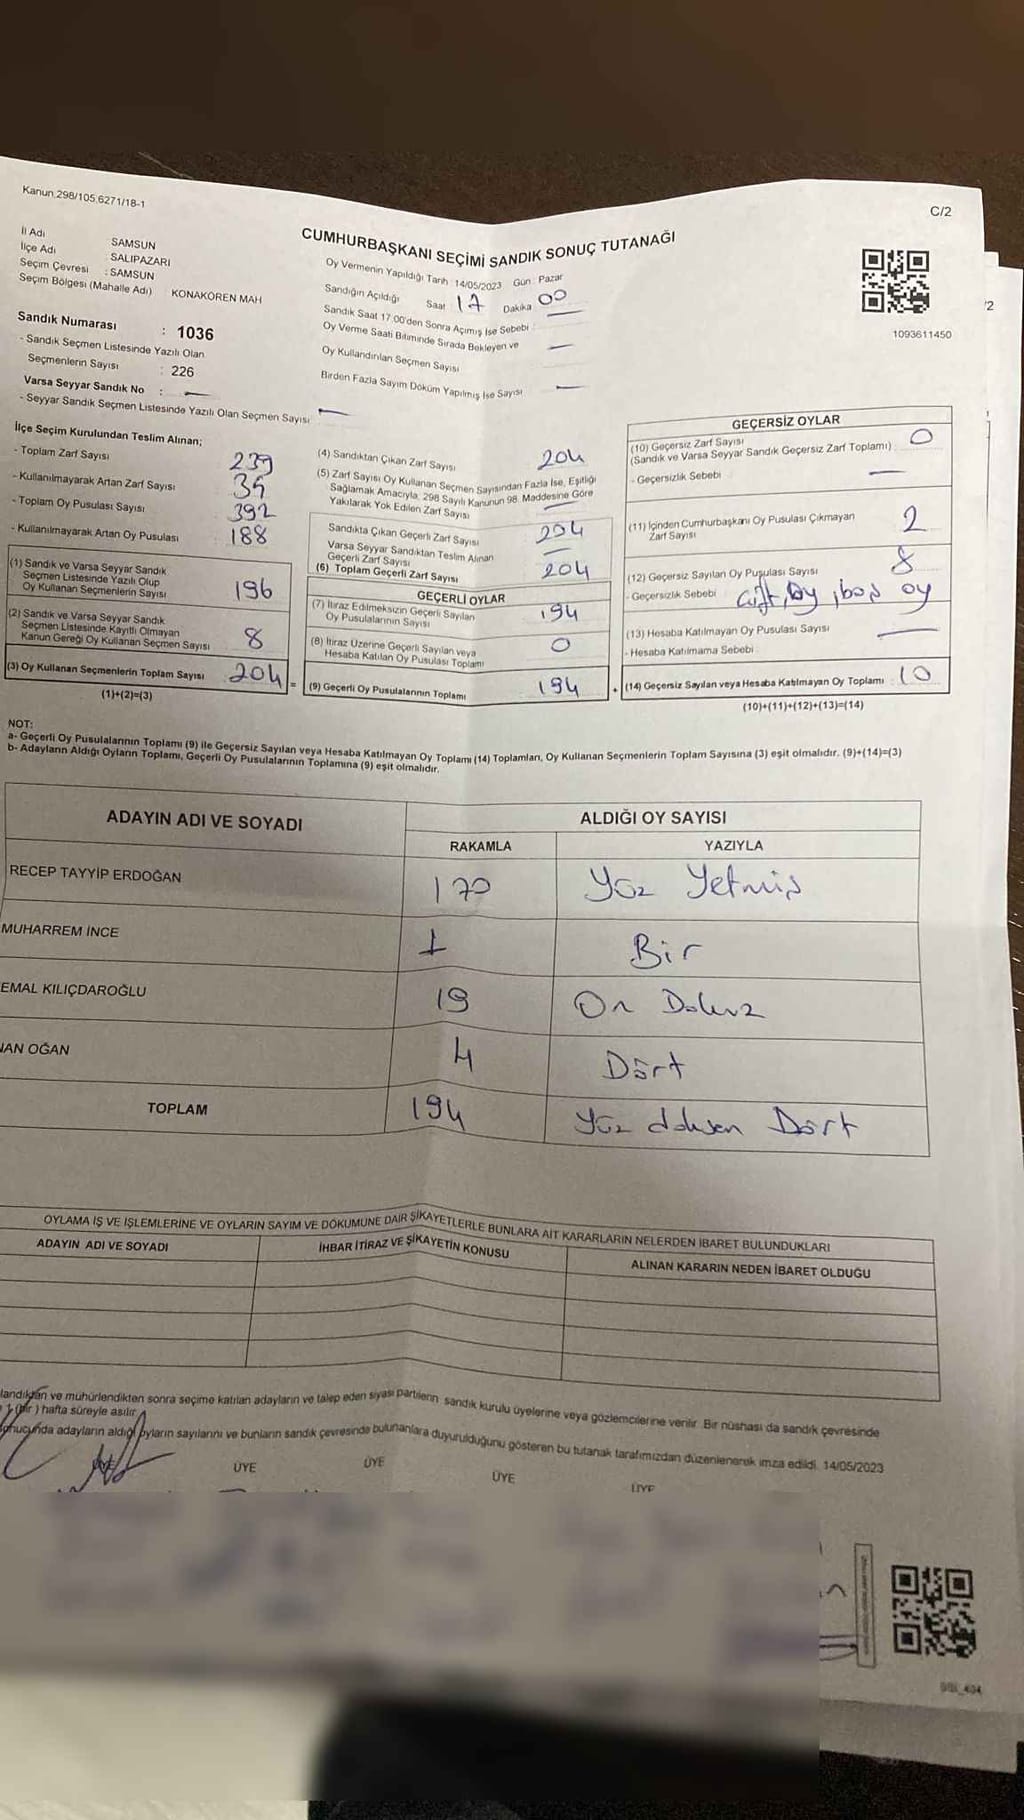 Kanun 298/105 6271/18-1
C/2
CUMHURBAŞKANI SEÇİMİ SANDIK SONUÇ TUTANAĞI
İl Adı SAMSUN
İlçe Adı : SALIPAZARI
Seçim Çevresi : SAMSUN
Seçim Bölgesi (Mahalle Adı) : KONAKÖREN MAH
Sandık Numarası : 1036
- Sandık Seçmen Listesinde Yazılı Olan
Seçmenlerin Sayısı : 226
Varsa Seyyar Sandık No : —
- Seyyar Sandık Seçmen Listesinde Yazılı Olan Seçmen Sayısı —
Oy Vermenin Yapıldığı Tarih : 14/05/2023 Gün : Pazar
Sandığın Açıldığı Saat 17 Dakika 00
Sandık Saat 17.00'den Sonra Açımış İse Sebebi : —
Oy Verme Saati Bitiminde Sırada Bekleyen ve
Oy Kullandırılan Seçmen Sayısı —
Birden Fazla Sayım Döküm Yapılmış İse Sayısı —
1093611450
İlçe Seçim Kurulundan Teslim Alınan;
- Toplam Zarf Sayısı 239
- Kullanılmayarak Artan Zarf Sayısı 35
- Toplam Oy Pusulası Sayısı 392
- Kullanılmayarak Artan Oy Pusulası 188
(1) Sandık ve Varsa Seyyar Sandık
Seçmen Listesinde Yazılı Olup
Oy Kullanan Seçmenlerin Sayısı 196
(2) Sandık ve Varsa Seyyar Sandık
Seçmen Listesinde Kayıtlı Olmayan
Kanun Gereği Oy Kullanan Seçmen Sayısı 8
(3) Oy Kullanan Seçmenlerin Toplam Sayısı 204 =
(1)+(2)=(3)
(4) Sandıktan Çıkan Zarf Sayısı 204
(5) Zarf Sayısı Oy Kullanan Seçmen Sayısından Fazla İse, Eşitliği
Sağlamak Amacıyla, 298 Sayılı Kanunun 98. Maddesine Göre
Yakılarak Yok Edilen Zarf Sayısı —
Sandıkta Çıkan Geçerli Zarf Sayısı 204
Varsa Seyyar Sandıktan Teslim Alınan
Geçerli Zarf Sayısı —
(6) Toplam Geçerli Zarf Sayısı 204
GEÇERLİ OYLAR
(7) İtiraz Edilmeksizin Geçerli Sayılan
Oy Pusulalarının Sayısı 194
(8) İtiraz Üzerine Geçerli Sayılan veya
Hesaba Katılan Oy Pusulası Toplamı 0
(9) Geçerli Oy Pusulalarının Toplamı 194 +
GEÇERSİZ OYLAR
(10) Geçersiz Zarf Sayısı
(Sandık ve Varsa Seyyar Sandık Geçersiz Zarf Toplamı) : 0
- Geçersizlik Sebebi —
(11) İçinden Cumhurbaşkanı Oy Pusulası Çıkmayan
Zarf Sayısı 2
(12) Geçersiz Sayılan Oy Pusulası Sayısı 8
- Geçersizlik Sebebi çift, oy, boş oy
(13) Hesaba Katılmayan Oy Pusulası Sayısı —
- Hesaba Katılmama Sebebi
(14) Geçersiz Sayılan veya Hesaba Katılmayan Oy Toplamı : 10
(10)+(11)+(12)+(13)=(14)
NOT:
a- Geçerli Oy Pusulalarının Toplamı (9) ile Geçersiz Sayılan veya Hesaba Katılmayan Oy Toplamı (14) Toplamları, Oy Kullanan Seçmenlerin Toplam Sayısına (3) eşit olmalıdır. (9)+(14)=(3)
b- Adayların Aldığı Oyların Toplamı, Geçerli Oy Pusulalarının Toplamına (9) eşit olmalıdır.
ADAYIN ADI VE SOYADI
ALDIĞI OY SAYISI
RAKAMLA YAZIYLA
RECEP TAYYİP ERDOĞAN 170 Yüz Yetmiş
MUHARREM İNCE 1 Bir
EMAL KILIÇDAROĞLU 19 On Dokuz
NAN OĞAN 4 Dört
TOPLAM 194 Yüz doksan Dört
OYLAMA İŞ VE İŞLEMLERİNE VE OYLARIN SAYIM VE DÖKÜMÜNE DAİR ŞİKAYETLERLE BUNLARA AİT KARARLARIN NELERDEN İBARET BULUNDUKLARI
ADAYIN ADI VE SOYADI İHBAR İTİRAZ VE ŞİKAYETİN KONUSU ALINAN KARARIN NEDEN İBARET OLDUĞU
landıktan ve mühürlendikten sonra seçime katılan adayların ve talep eden siyasi partilerin sandık kurulu üyelerine veya gözlemcilerine verilir. Bir nüshası da sandık çevresinde
1 (bir) hafta süreyle asılır.
onucunda adayların aldığı oyların sayılarını ve bunların sandık çevresinde bulunanlara duyurulduğunu gösteren bu tutanak tarafımızdan düzenlenerek imza edildi. 14/05/2023
ÜYE ÜYE ÜYE ÜYE